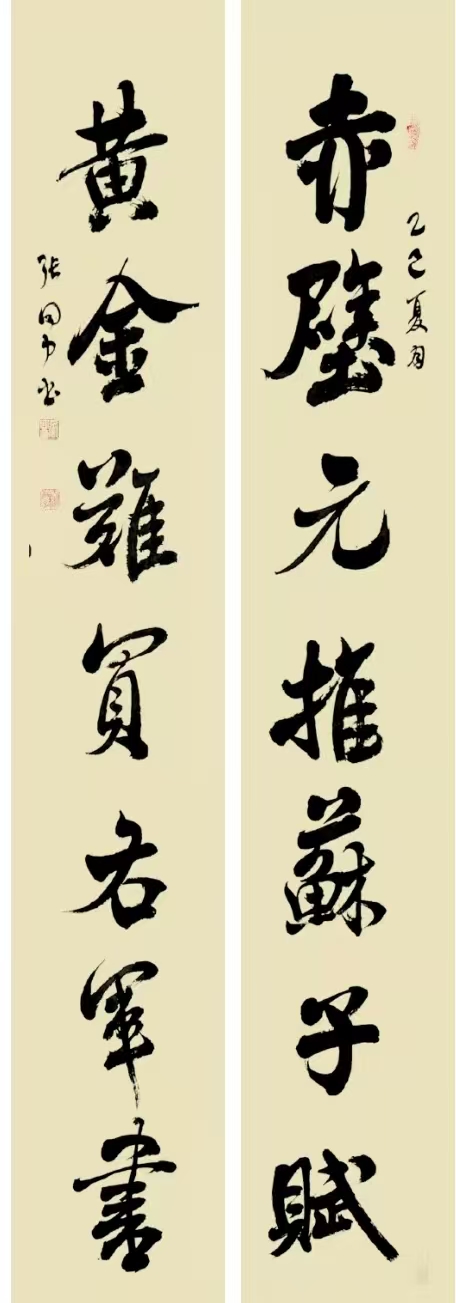 乙巳夏月
赤壁元推蘇子賦
黄金難買右軍書
張书